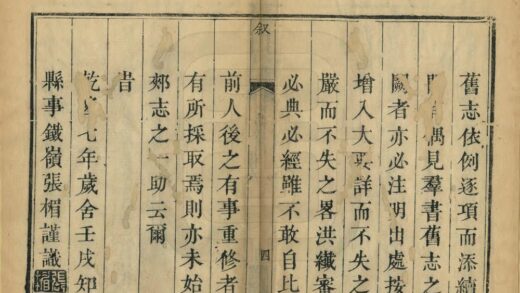 舊志依例逐項而添續
偶見羣書舊志之
闕者亦必注明出處按
增入大要詳而不失之
嚴而不失之畧洪纖審
必典必經雖不敢自比
叙
四
前人後之有事重修者
有所採取焉則亦未始
郟志之一助云爾
旹
乾隆七年歲舍壬戌知
縣事鐵嶺張楣謹識